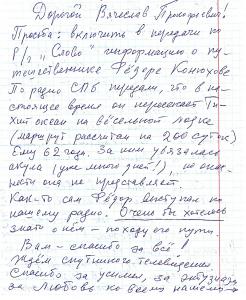 Дорогой Вячеслав Прокофьевич!
Просьба: включить в передачи по
Р/л "Слово" информацию о пу-
тешественнике Фёдоре Конюхове
По радио СПб передали, что в на-
стоящее время он пересекает Ти-
хий океан на вёсельной лодке
(маршрут рассчитан на 200 суток)
Ему 62 года. За ним увязалась
акула (уже много дней!), но опас-
ности она не представляет.
Как-то сам Фёдор выступал по
нашему радио. Очень бы хотелось
знать о нём – походу его пути.
Вам – спасибо за всё!
Ждём спутникового телевидения
Спасибо за усилия, за энтузиазм
за любовь ко всему